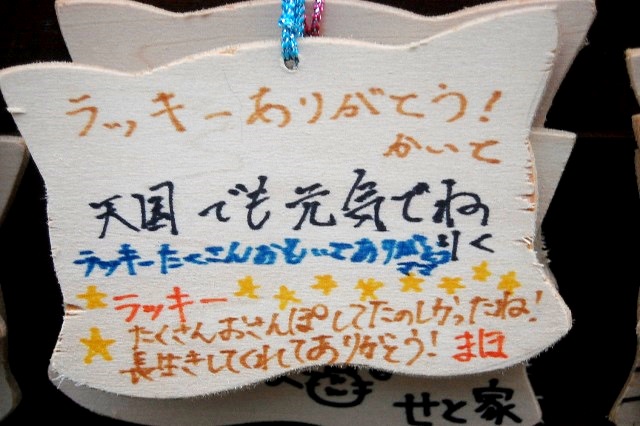 ラッキーありがとう!
かいと
天国でも元気でね
りく
ラッキーたくさんおもいでありがとう
ママ
ラッキー
たくさんおさんぽしてたのしかったね!
長生きしてくれてありがとう! まほ
せと家